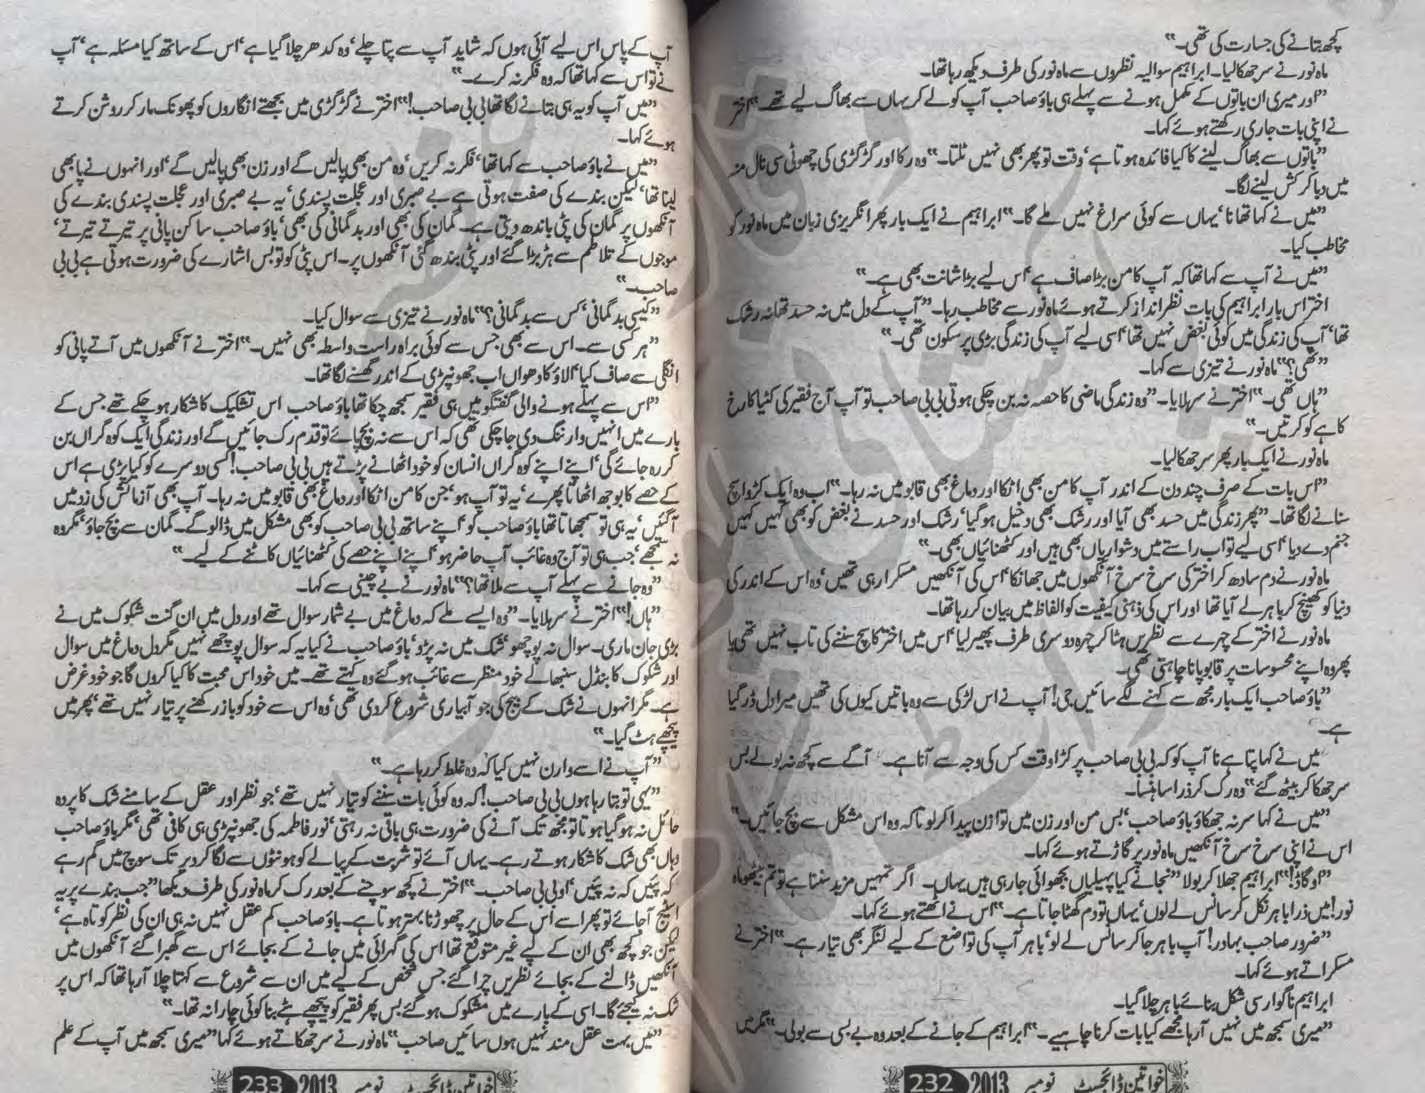 کچھ بتانے کی جسارت کی تھی۔"
ماہ نور نے سر جھکا لیا۔ ابراہیم سوالیہ نظروں سے ماہ نور کی طرف دیکھ رہا تھا۔
"اور میری ان باتوں کے مکمل ہونے سے پہلے ہی باؤ صاحب آپ کو لے کر یہاں سے بھاگ لیے تھے۔" اختر
نے اپنی بات جاری رکھتے ہوئے کہا۔
"باتوں سے بھاگ لینے کا کیا فائدہ ہوتا ہے' وقت تو پھر بھی نہیں ٹلتا۔" وہ رکا اور گڑگڑی کی چھوٹی سی نال منہ
میں دبا کر کش لینے لگا۔
"میں نے کہا تھا نا' یہاں سے کوئی سراغ نہیں ملے گا۔" ابراہیم نے ایک بار پھر انگریزی زبان میں ماہ نور کو
مخاطب کیا۔
"میں نے آپ سے کہا تھا کہ آپ کا من بڑا صاف ہے' اس لیے بڑا شانت بھی ہے۔"
اختر اس بار ابراہیم کی بات نظر انداز کرتے ہوئے ماہ نور سے مخاطب رہا۔ "آپ کے دل میں نہ حسد تھا نہ رشک
تھا' آپ کی زندگی میں کوئی بغض نہیں تھا' اسی لیے آپ کی زندگی بڑی پر سکون تھی۔"
"تھی؟" ماہ نور نے تیزی سے کہا۔
"ہاں تھی۔" اختر نے سر ہلایا۔ "وہ زندگی ماضی کا حصہ نہ بن چکی ہوتی بی بی صاحب تو آپ آج فقیر کی کٹیا کا رخ
کاہے کو کرتیں۔"
ماہ نور نے ایک بار پھر سر جھکا لیا۔
"اس بات کے صرف چند دن کے اندر آپ کا من بھی اٹکا اور دماغ بھی قابو میں نہ رہا۔" اب وہ ایک کڑوا سچ
سنانے لگا تھا۔ "پھر زندگی میں حسد بھی آیا اور رشک بھی دخیل ہو گیا' رشک اور حسد نے بغض کو بھی کہیں کہیں
جنم دے دیا' اسی لیے تو اب راستے میں دشواریاں بھی ہیں اور کٹھنائیاں بھی۔"
ماہ نور نے دم سادھ کر اختر کی سرخ سرخ آنکھوں میں جھانکا' اس کی آنکھیں مسکرا رہی تھیں' وہ اس کے اندر کی
دنیا کو کھینچ کر باہر لے آیا تھا اور اس کی ذہنی کیفیت کو الفاظ میں بیان کر رہا تھا۔
ماہ نور نے اختر کے چہرے سے نظریں ہٹا کر چہرہ دوسری طرف پھیر لیا' اس میں اختر کا سچ سننے کی تاب نہیں تھی یا
پھر وہ اپنے محسوسات پر قابو پانا چاہتی تھی۔
"باؤ صاحب ایک بار مجھ سے کہنے لگے سائیں جی! آپ نے اس لڑکی سے وہ باتیں کیوں کی تھیں میرا دل ڈر گیا
ہے۔
میں نے کہا پتا ہے نا آپ کو کہ بی بی صاحب پر کڑا وقت کس کی وجہ سے آنا ہے۔ آگے سے کچھ نہ بولے بس
سر جھکا کر بیٹھ گئے" وہ رک کر ذرا سا ہنسا۔
"میں نے کہا سر نہ جھکاؤ باؤ صاحب' بس من اور زن میں توازن پیدا کر لو تاکہ وہ اس مشکل سے بچ جائیں۔"
اس نے اپنی سرخ سرخ آنکھیں ماہ نور پر گاڑتے ہوئے کہا۔
"او گاڈ!" ابراہیم جھلا کر بولا "نجانے کیا پہیلیاں بجھوائی جا رہی ہیں یہاں۔ اگر تمہیں مزید سننا ہے تو تم بیٹھو ماہ
نور! میں ذرا باہر نکل کر سانس لے لوں' یہاں تو دم گھٹا جاتا ہے۔" اس نے اٹھتے ہوئے کہا۔
"ضرور صاحب بہادر! آپ باہر جا کر سانس لے لو' باہر آپ کی تواضع کے لیے لنگر بھی تیار ہے۔" اختر نے
مسکراتے ہوئے کہا۔
ابراہیم ناگوار سی شکل بنائے باہر چلا گیا۔
"میری سمجھ میں نہیں آ رہا مجھے کیا بات کرنا چاہیے۔" ابراہیم کے جانے کے بعد وہ بے بسی سے بولی۔ "مگر میں
خواتین ڈائجسٹ نومبر 2013 232
آپ کے پاس اس لیے آئی ہوں کہ شاید آپ سے پتا چلے' وہ کدھر چلا گیا ہے' اس کے ساتھ کیا مسئلہ ہے' آپ
نے تو اس سے کہا تھا کہ وہ فکر نہ کرے۔"
"میں آپ کو یہ ہی بتانے لگا تھا بی بی صاحب!" اختر نے گڑگڑی میں بجھتے انگاروں کو پھونک مار کر روشن کرتے
ہوئے کہا۔
"میں نے باؤ صاحب سے کہا تھا' فکر نہ کریں' وہ من بھی پالیں گے اور زن بھی پالیں گے' اور انہوں نے پا بھی
لینا تھا' لیکن بندے کی صفت ہوتی ہے بے صبری اور عجلت پسندی' یہ بے صبری اور عجلت پسندی بندے کی
آنکھوں پر گمان کی پٹی باندھ دیتی ہے۔ گمان کی بھی اور بد گمانی کی بھی' باؤ صاحب ساکن پانی پر تیرتے تیرتے'
موجوں کے تلاطم سے ہڑبڑا گئے اور پٹی بندھ گئی آنکھوں پر۔ اس پٹی کو تو بس اشارے کی ضرورت ہوتی ہے بی بی
صاحب۔"
"کیسی بد گمانی' کس سے بد گمانی؟" ماہ نور نے تیزی سے سوال کیا۔
"ہر کسی سے۔ اس سے بھی جس سے کوئی براہ راست واسطہ بھی نہیں۔" اختر نے آنکھوں میں آتے پانی کو
انگلی سے صاف کیا' الاؤ کا دھواں اب جھونپڑی کے اندر گھسنے لگا تھا۔
"اس سے پہلے ہونے والی گفتگو میں ہی فقیر سمجھ چکا تھا باؤ صاحب اس تشکیک کا شکار ہو چکے تھے جس کے
بارے میں انہیں وارننگ دی جا چکی تھی کہ اس سے نہ بچ پائے تو قدم رک جائیں گے اور زندگی ایک کوہ گراں بن
کر رہ جائے گی' اپنے اپنے کوہ گراں انسان کو خود اٹھانے پڑتے ہیں بی بی صاحب! کسی دوسرے کو کیا پڑی ہے اس
کے حصے کا بوجھ اٹھاتا پھرے' یہ تو آپ ہو' جن کا من اٹکا اور دماغ بھی قابو میں نہ رہا۔ آپ بھی آزمائش کی زد میں
آ گئیں' یہ ہی تو سمجھاتا تھا باؤ صاحب کو' اپنے ساتھ بی بی صاحب کو بھی مشکل میں ڈالو گے۔ گمان سے بچ جاؤ' مگر وہ
نہ سمجھے' جب ہی تو آج وہ غائب آپ حاضر ہو' اپنے اپنے حصے کی کٹھنائیاں کاٹنے کے لیے۔"
"وہ جانے سے پہلے آپ سے ملا تھا؟" ماہ نور نے بے چینی سے کہا۔
"ہاں!" اختر نے سر ہلایا۔ "وہ ایسے ملے کہ دماغ میں بے شمار سوال تھے اور دل میں ان گنت شکوک میں نے
بڑی جان ماری۔ سوال نہ پوچھو' شک میں نہ پڑو' باؤ صاحب نے کیا یہ کہ سوال پوچھے نہیں مگر دل دماغ میں سوال
اور شکوک کا بنڈل سنبھالے خود منظر سے غائب ہو گئے وہ کہتے تھے۔ میں خود اس محبت کا کیا کروں گا جو خود غرض
ہے۔ مگر انہوں نے شک کے بیج کی جو آبیاری شروع کر دی تھی' وہ اس سے خود کو باز رکھنے پر تیار نہیں تھے' پھر میں
پیچھے ہٹ گیا۔"
"آپ نے اسے وارن نہیں کیا کہ وہ غلط کر رہا ہے۔"
"یہی تو بتا رہا ہوں بی بی صاحب! کہ وہ کوئی بات سننے کو تیار نہیں تھے' جو نظر اور عقل کے سامنے شک کا پردہ
حائل نہ ہو گیا ہوتا تو مجھ تک آنے کی ضرورت ہی باقی نہ رہتی' نور فاطمہ کی جھونپڑی ہی کافی تھی' مگر باؤ صاحب
وہاں بھی شک کا شکار ہوتے رہے۔ یہاں آئے تو شربت کے پیالے کو ہونٹوں سے لگا کر دیر تک سوچ میں گم رہے
کہ پئیں کہ نہ پئیں' او بی بی صاحب۔" اختر نے کچھ سوچنے کے بعد رک کر ماہ نور کی طرف دیکھا "جب بندے پر یہ
اسٹیج آ جائے تو پھر اسے اس کے حال پر چھوڑنا بہتر ہوتا ہے۔ باؤ صاحب کم عقل نہیں نہ ہی ان کی نظر کوتاہ ہے'
لیکن جو کچھ بھی ان کے لیے غیر متوقع تھا اس کی گہرائی میں جانے کے بجائے اس سے گھبرا گئے آنکھوں میں
آنکھیں ڈالنے کے بجائے نظریں چرا گئے جس شخص کے لیے میں ان سے شروع سے کہتا چلا آ رہا تھا کہ اس پر
شک نہ کیجئے گا۔ اسی کے بارے میں مشکوک ہو گئے بس پھر فقیر کو پیچھے ہٹے بنا کوئی چارا نہ تھا۔"
"میں بہت عقل مند نہیں ہوں سائیں صاحب" ماہ نور نے سر جھکاتے ہوئے کہا "میری سمجھ میں آپ کے علم
خواتین ڈائجسٹ نومبر 2013 233